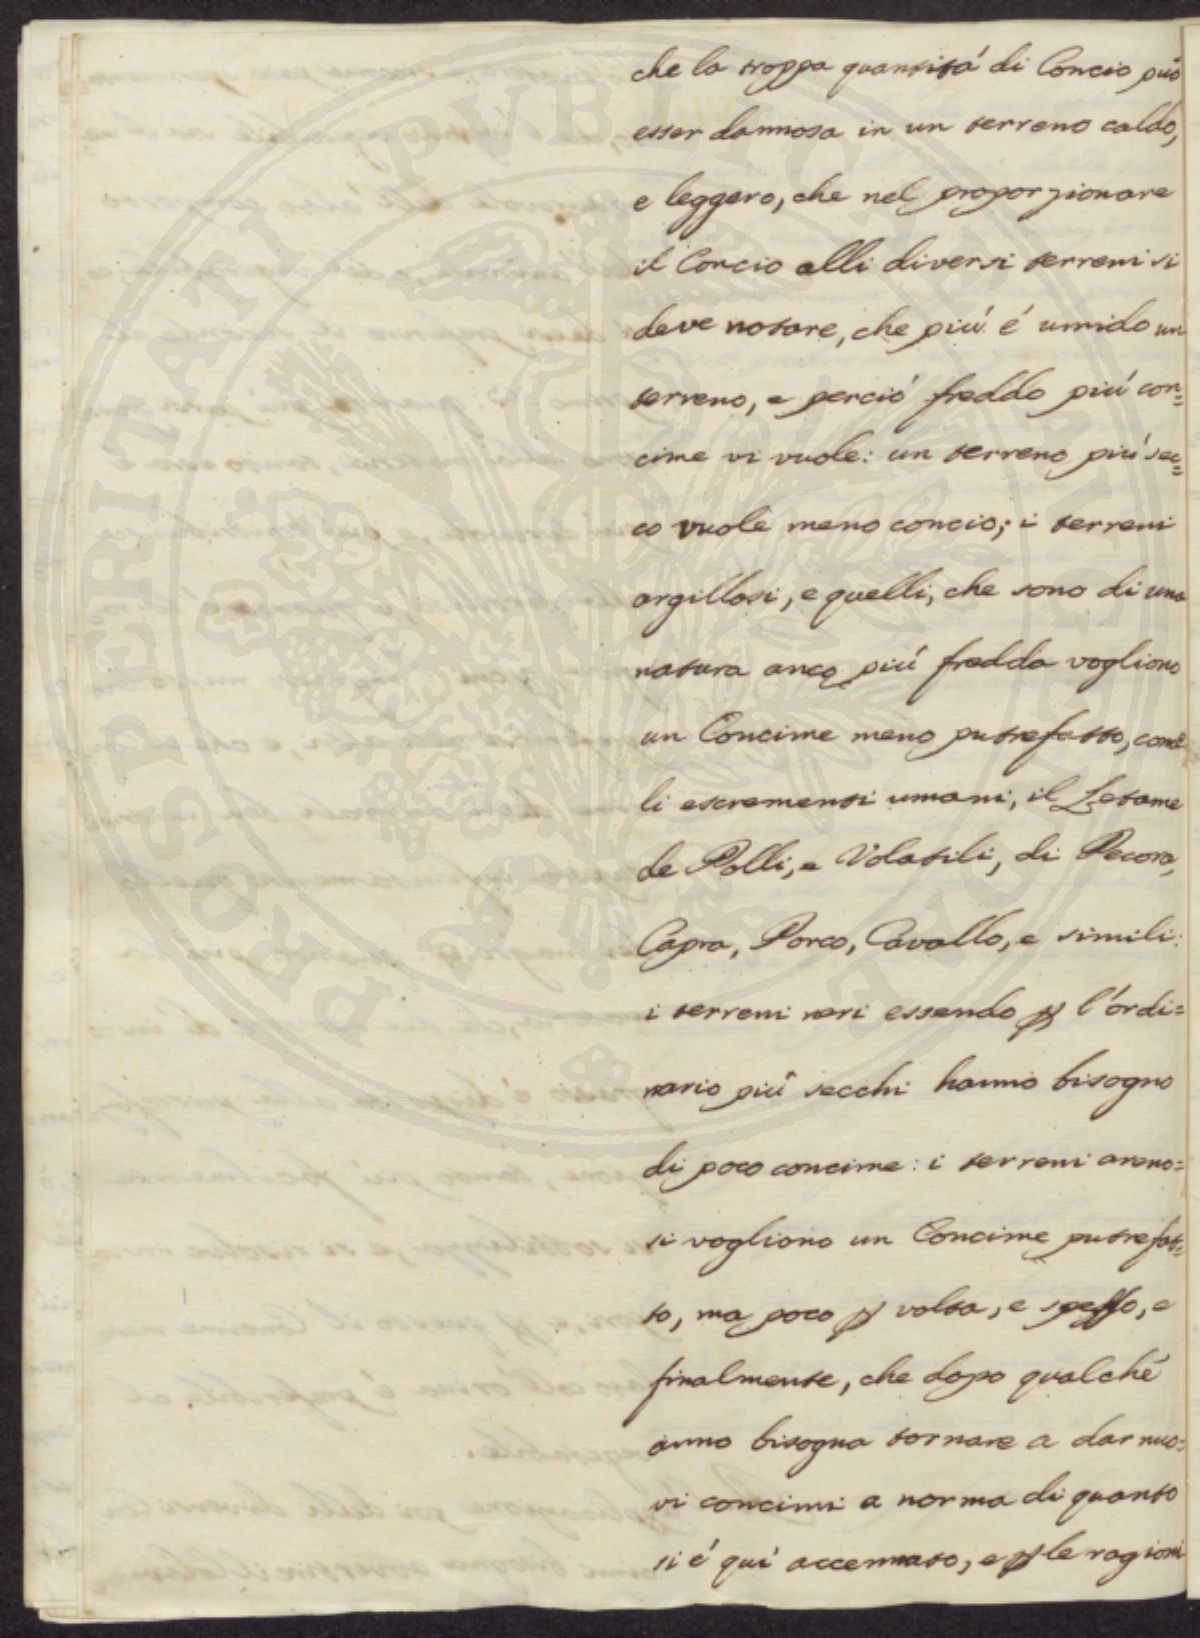 che la troppa quantitá di Concio puó
esser dannosa in un terreno caldo,
e leggero, che nel proporzionare
il Concio alli diversi terreni si
deve notare, che piú é umido un
terreno, e perció freddo piú con=
cime vi vuole: un terreno piú sec=
co vuole meno concio; i terreni
argillosi, e quelli, che sono di una
natura anco piú fredda vogliono
un Concime meno putrefatto, come
li escrementi umani, il Letame
de Polli, e Volatili, di Pecora,
Capra, Porco, Cavallo, e simili:
i terreni neri essendo ꝑ l'ordi=
nario piú secchi hanno bisogno
di poco concime: i terreni areno=
si vogliono un Concime putrefat=
to, ma poco ꝑ volta, e spesso, e
finalmente, che dopo qualché
anno bisogna tornare a dar nuo=
vi concimi a norma di quanto
si é quí accennato, e ꝑ le ragioni
PROSPERITATI PVBLICAE